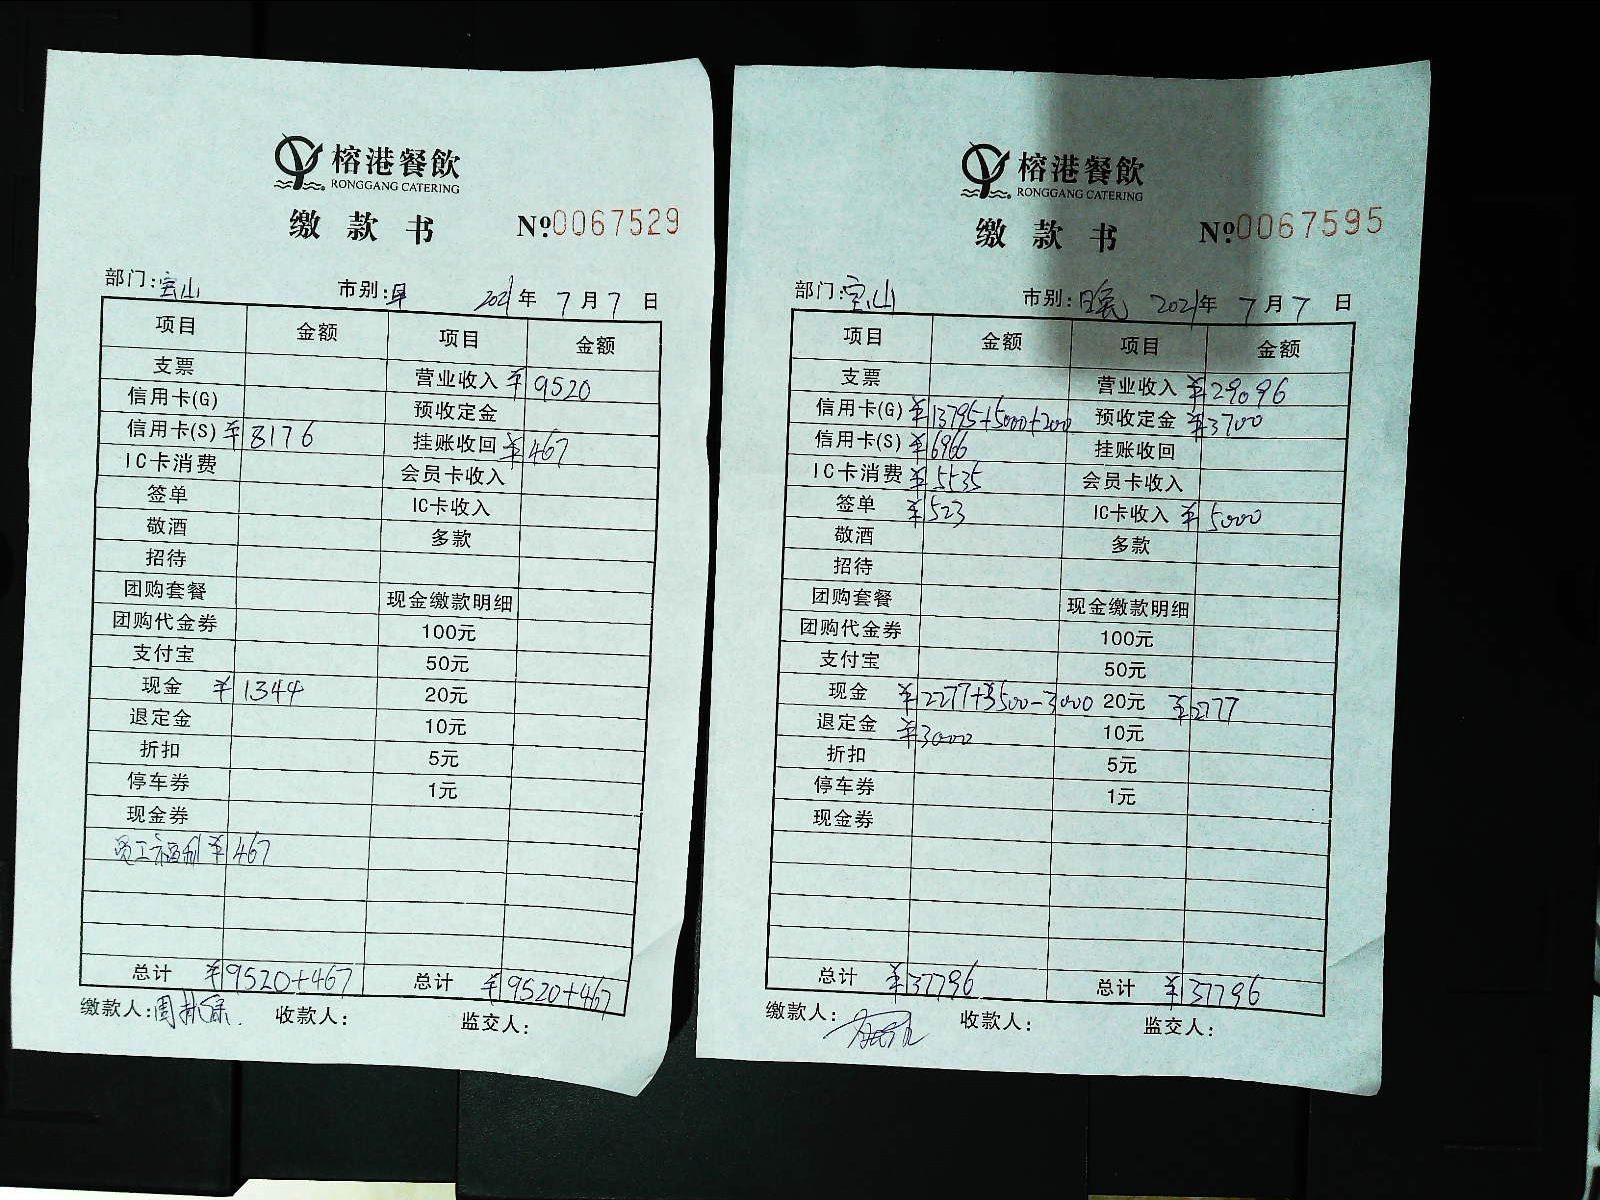 榕港餐飲
RONGGANG CATERING
缴款书 №0067529
部门:宝山 市别:早 2021年7月7日
项目 金额 项目 金额
支票 营业收入 ¥9520
信用卡(G) 预收定金
信用卡(S) ¥8176 挂账收回 ¥467
IC卡消费 会员卡收入
签单 IC卡收入
敬酒 多款
招待
团购套餐 现金缴款明细
团购代金券 100元
支付宝 50元
现金 ¥1344 20元
退定金 10元
折扣 5元
停车券 1元
现金券
员工福利 ¥467
总计 ¥9520+467 总计 ¥9520+467
缴款人:周林保 收款人: 监交人:
榕港餐飲
RONGGANG CATERING
缴款书 №0067595
部门:宝山 市别:晚 2021年7月7日
项目 金额 项目 金额
支票 营业收入 ¥29096
信用卡(G) ¥13795+5000+2000 预收定金 ¥3700
信用卡(S) ¥6966 挂账收回
IC卡消费 ¥5535 会员卡收入
签单 ¥523 IC卡收入 ¥5000
敬酒 多款
招待
团购套餐 现金缴款明细
团购代金券 100元
支付宝 50元
现金 ¥2277+¥500-3000 20元 ¥2777
退定金 ¥3000 10元
折扣 5元
停车券 1元
现金券
总计 ¥37796 总计 ¥37796
缴款人: 收款人: 监交人: